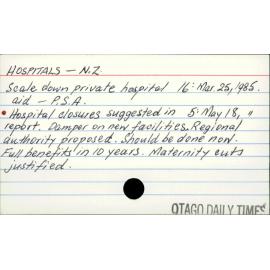 HOSPITALS — N.Z.
Scale down private hospital 16: Mar. 25, 1985.
aid — P.S.A.
• Hospital closures suggested in 5: May 18, "
report. Damper on new facilities. Regional
authority proposed. Should be done now.
Full benefits in 10 years. Maternity cuts
justified.
OTAGO DAILY TIMES